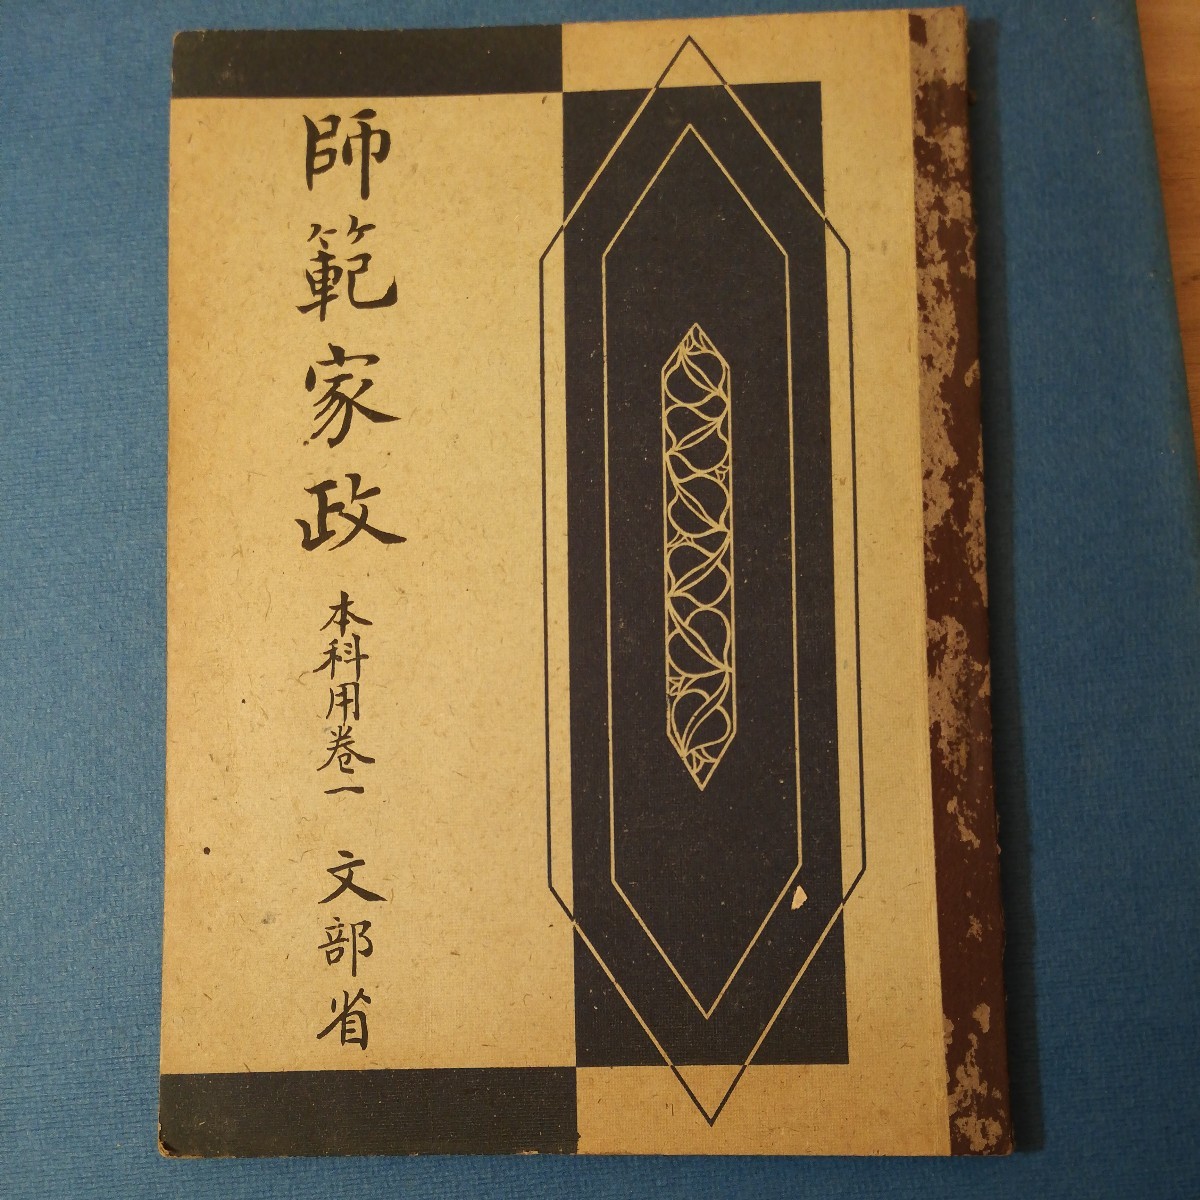 師範家政 本科用巻一 文部省